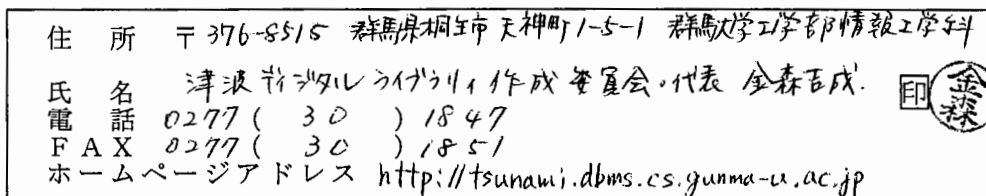 住所 〒376-8515 群馬県桐生市天神町1-5-1 群馬大学工学部情報工学科
氏名 津波ディジタルライブラリィ作成委員会・代表 金森吉成. 印 金森
電話 0277( 30 )1847
FAX 0277( 30 )1851
ホームページアドレス http://tsunami.dbms.cs.gunma-u.ac.jp